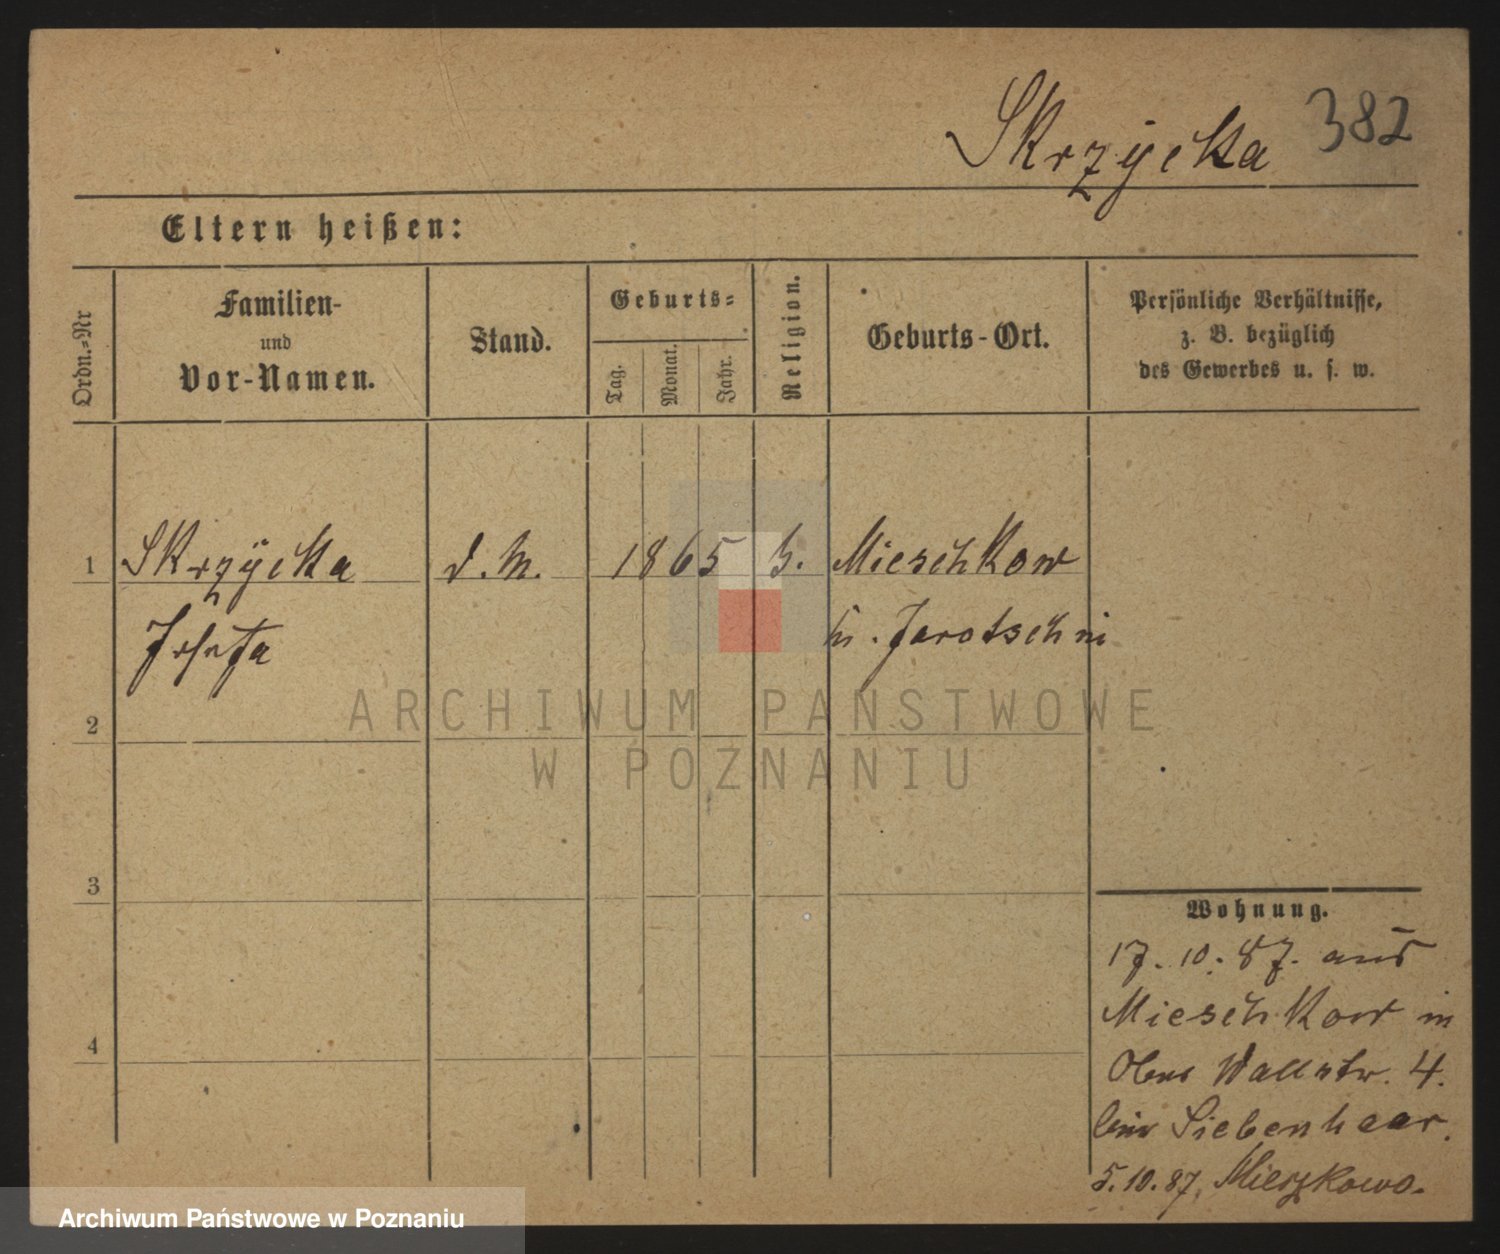 Skrzycka 382
Eltern heißen:
Ordn.-Nr
Familien-
und
Vor-Namen.
Stand.
Geburts-
Tag.
Monat.
Jahr.
Religion.
Geburts-Ort.
Persönliche Verhältnisse,
z. B. bezüglich
des Gewerbes u. s. w.
1 Skrzycka d. M. 1865 Mieschkow
Josefa Jarotschin
2
3
4
Wohnung.
17. 10. 87. aus
Mieschkow in
Wallstr. 4.
Siebenhaar.
5.10.87. Mieszkowo.
ARCHIWUM PAŃSTWOWE
W POZNANIU
Archiwum Państwowe w Poznaniu